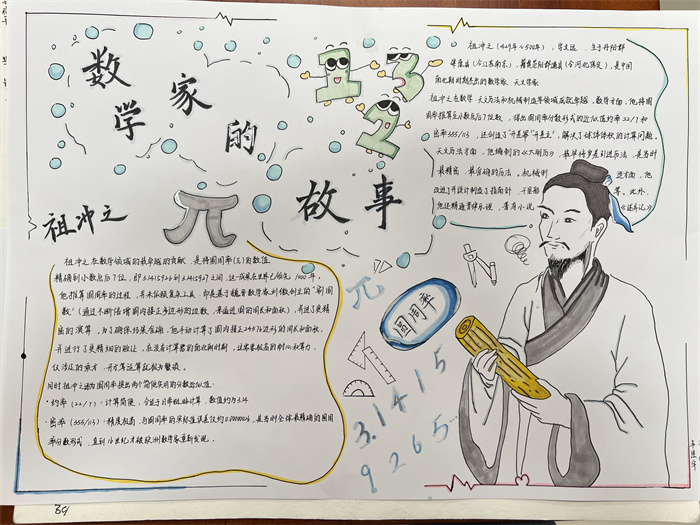 数学家的
故事
1
2
3
祖冲之
π
祖冲之（429年~500年），字文远，生于丹阳郡
建康县（今江苏南京），籍贯范阳郡遒县（今河北涞水），是中国
南北朝时期杰出的数学家、天文学家
祖冲之在数学、天文历法和机械制造等领域成就卓越。数学方面，他将圆
周率推算至小数点后7位数，得出圆周率分数形式的近似值约率22/7和
密率355/113，还创造了"开差幂""开差立"，解决了球体体积的计算问题。
天文历法方面，他编制的《大明历》，最早将岁差引进历法，是当时
最精密、最准确的历法。机械制造方面，他
改进了并设计制造了指南针，千里船等。此外，
他还精通音律乐理，著有小说《述异记》
祖冲之在数学领域的最卓越的贡献，是将圆周率(π)的数值
精确到小数点后7位，即3.1415926到3.1415927之间，这一成果在世界上领先1000年。
他推算圆周率的过程，并未依赖复杂工具，而是基于魏晋数学家刘徽创立的"割圆
术"（通过不断倍增圆内接正多边形的边数，来逼近圆的周长和面积），并进了更精
密的演算。为了确保结果准确，他手动计算了圆内接正24576边形的周长和面积，
并进行了更精细的验证，在没有计算器的南北朝时期，这需要极高的耐心和算力，
仅涉及的乘方、开方等运算就极为繁琐。
同时祖冲之还为圆周率提出两个简便实用的分数近似值：
·约率（22/7）：计算简便，合适于日常粗略计算，数值约为3.14
·密率（355/113）：精度极高，与圆周率的实际值误差仅约0.0000026，是当时全球最精确的圆周
率分数形式，直到16世纪才被欧洲数学家重新发现。
π
圆周率
3.1415
9265…